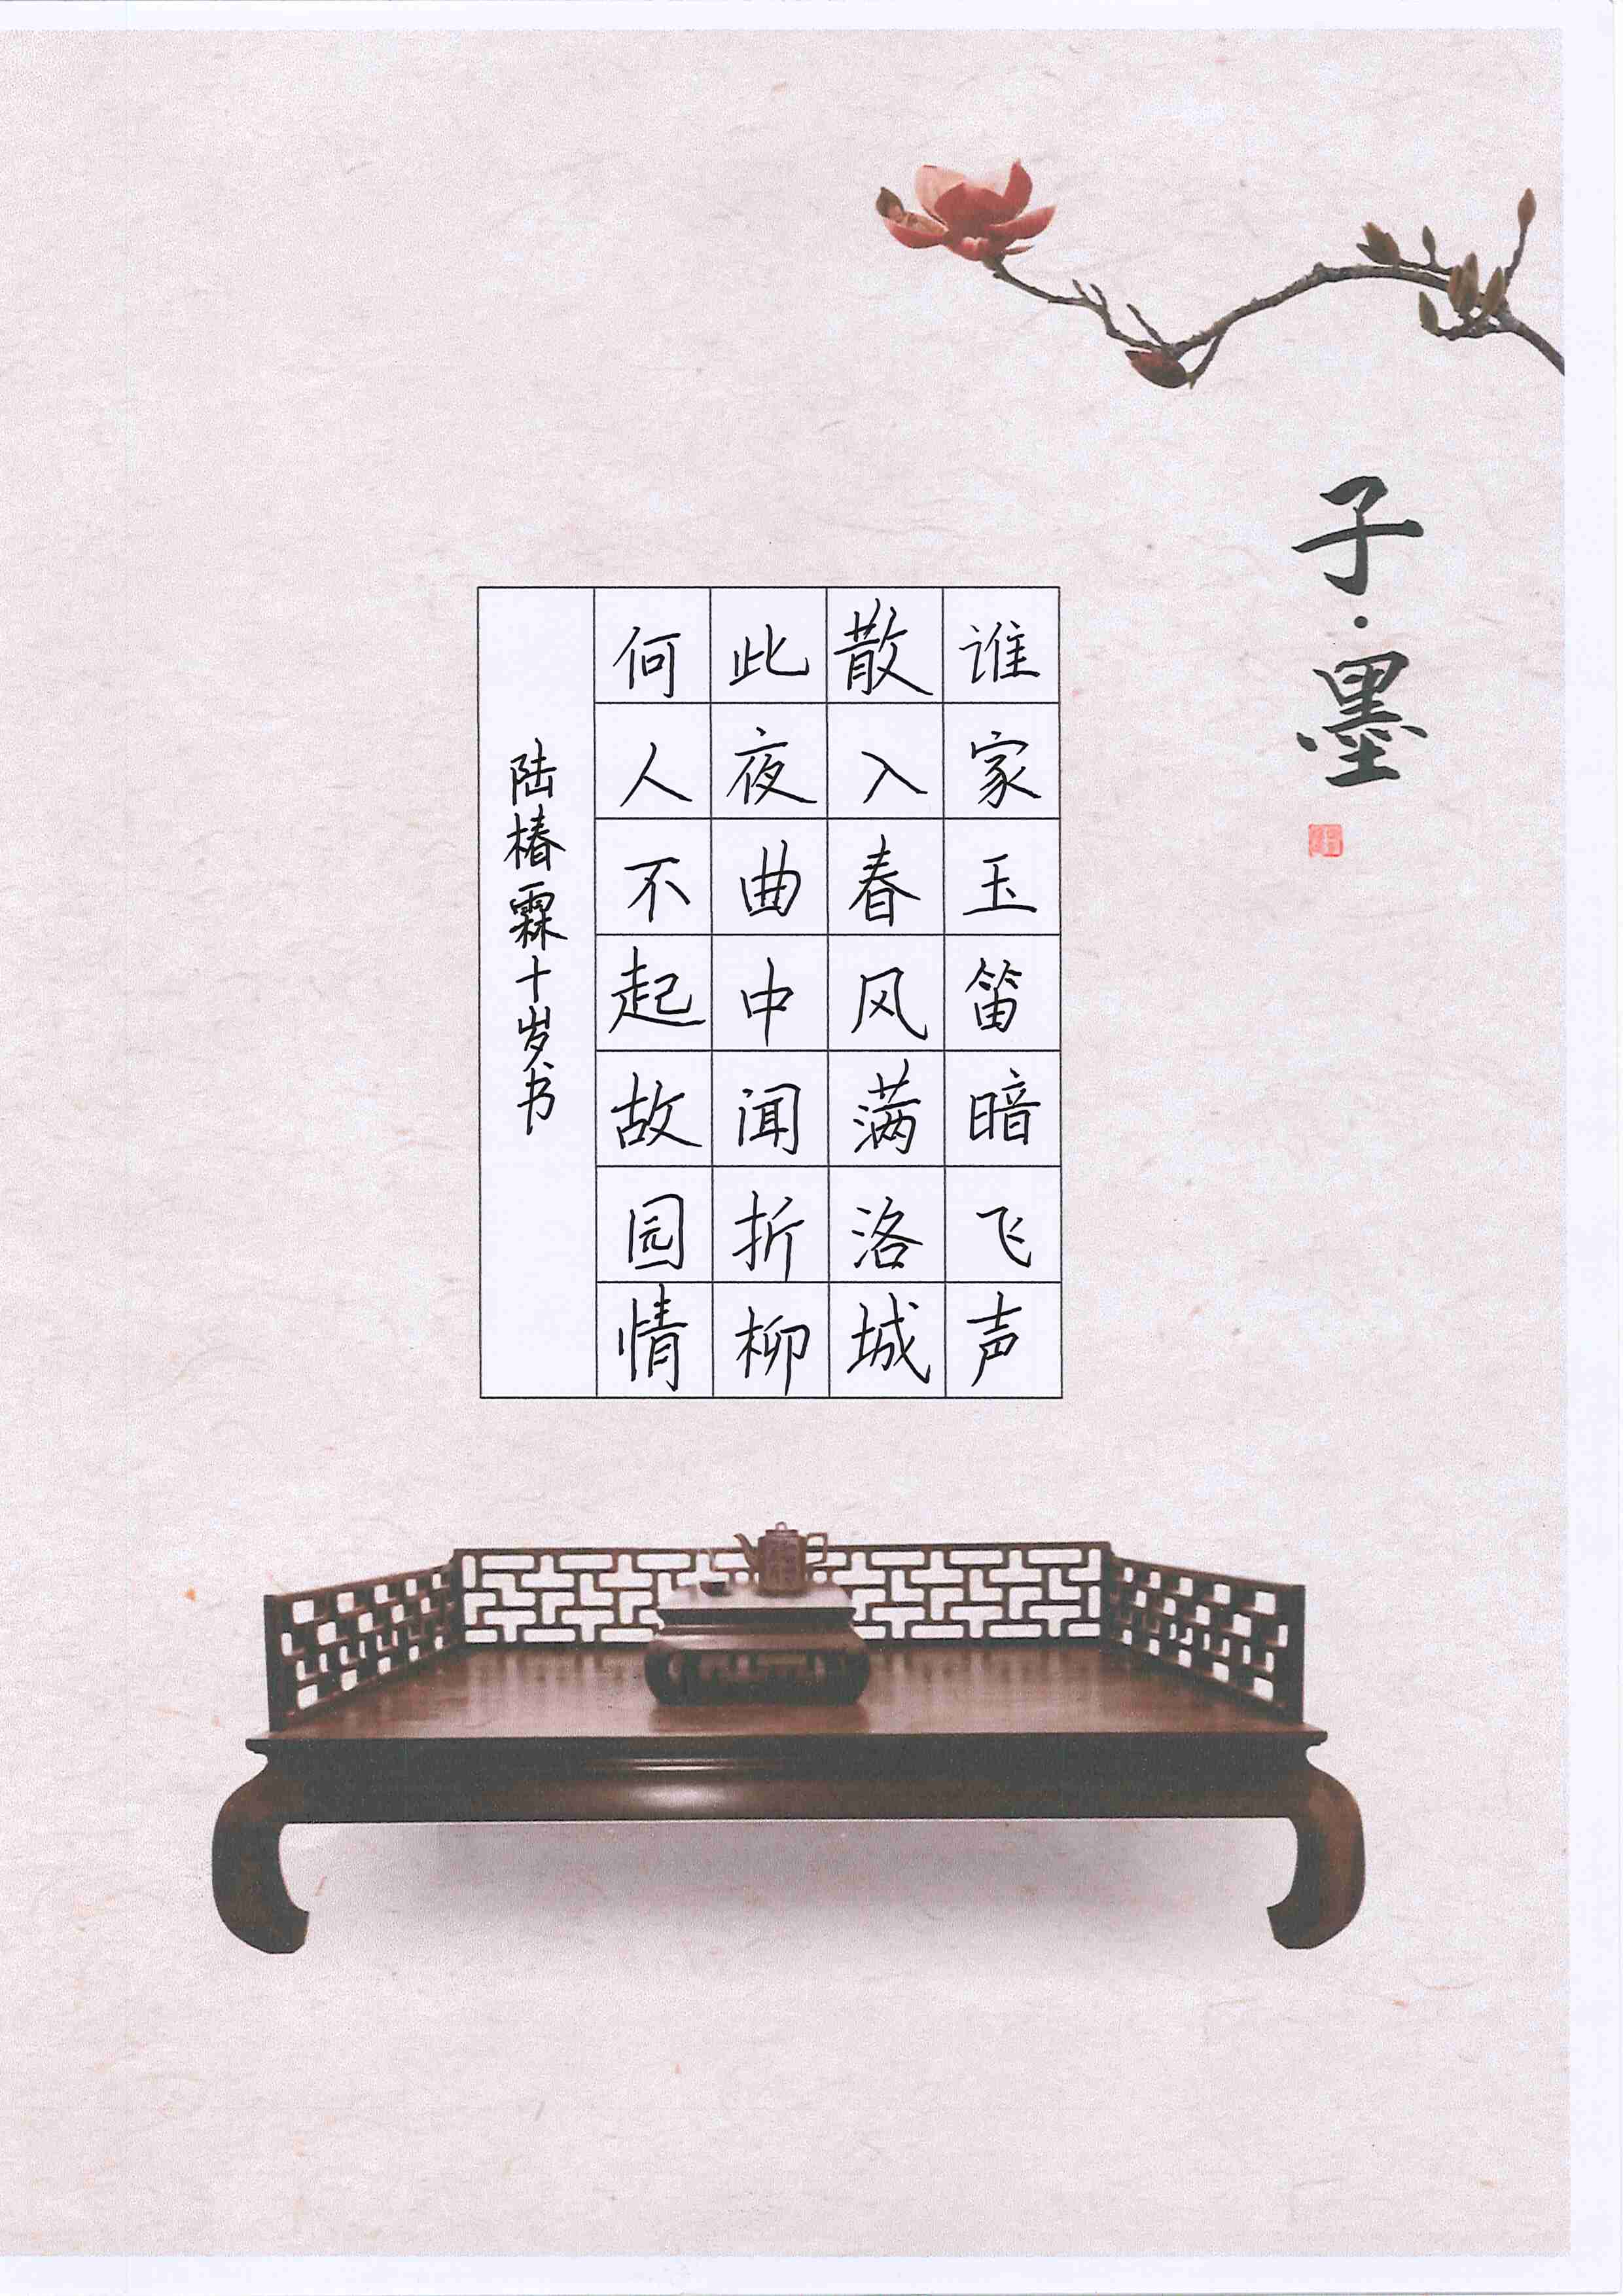 子·墨
谁家玉笛暗飞声
散入春风满洛城
此夜曲中闻折柳
何人不起故园情
陆椿霖十岁书